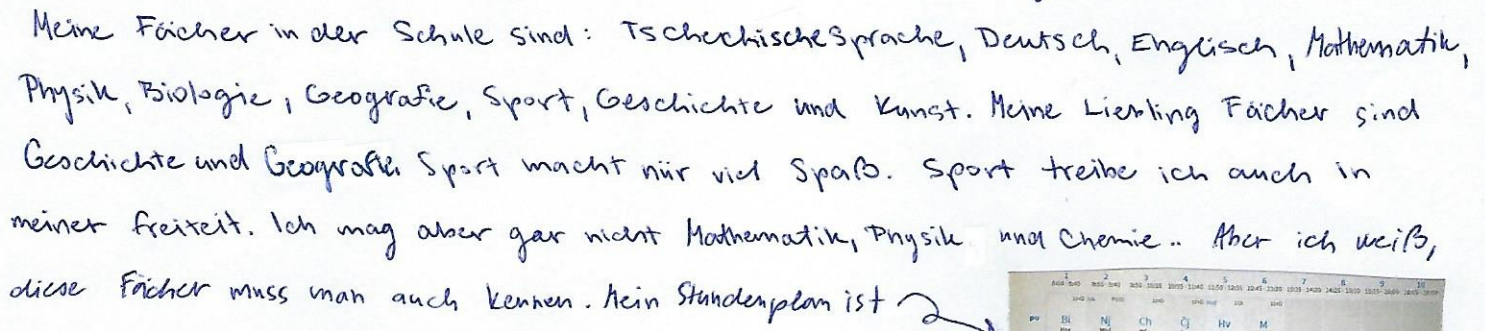 Meine Fächer in der Schule sind: Tschechische Sprache, Deutsch, Englisch, Mathematik,
Physik, Biologie, Geografie, Sport, Geschichte und Kunst. Meine Liebling Fächer sind
Geschichte und Geografie Sport macht mir viel Spaß. Sport treibe ich auch in
meiner freizeit. Ich mag aber gar nicht Mathematik, Physik und Chemie.. Aber ich weiß,
diese Fächer muss man auch kennen. Mein Stundenplan ist
1 2 3 4 5 6 7 8 9 10
Po Bi Nj Ch Čj Hv M